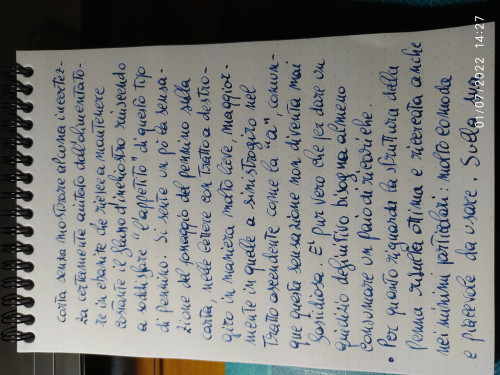 carta senza mostrare alcuna incertez-
za certamente aiutato dall'alimentato-
re in ebanite che riesce a mantenere
costante il flusso d'inchiostro riuscendo
a soddisfare "l'appetito" di questo tipo
di pennino. Si sente un pò la sensa-
zione del passaggio del pennino sulla
carta, nelle lettere con tratto a destro-
giro in maniera molto lieve, maggior-
mente in quelle a sinistrogiro nel
tratto ascendente come la "a", comun-
que questa sensazione non diventa mai
fastidiosa. E' pur vero che per dare un
giudizio definitivo bisogna almeno
consumare un paio di ricariche.
• Per quanto riguarda la struttura della
penna risulta ottima e ricercata anche
nei minimi particolari: molto comoda
e piacevole da usare. Sulla
01/07/2022 14:27